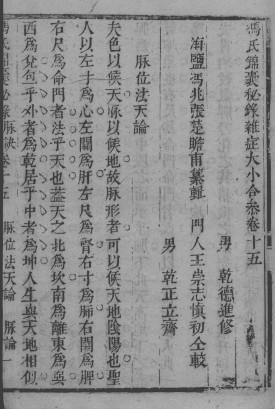 馮氏錦囊秘錄雜症大小合參卷十五
海鹽馮兆張楚瞻甫纂輯　門人王崇志慎初仝較
男　乾德進修
男　乾正立齋
脉位法天論
夫色以候天脉以候地故脉形者可以候天地陰陽也聖
人以左寸為心左關為肝左尺為腎右寸為肺右關為脾
右尺為命門者法乎天也蓋天之北為坎南為離東為
西為兌包乎外者為乾居乎中者為坤人生與天地相似
馮氏錦囊秘錄脉訣卷十五　脉位法天論　脉論一